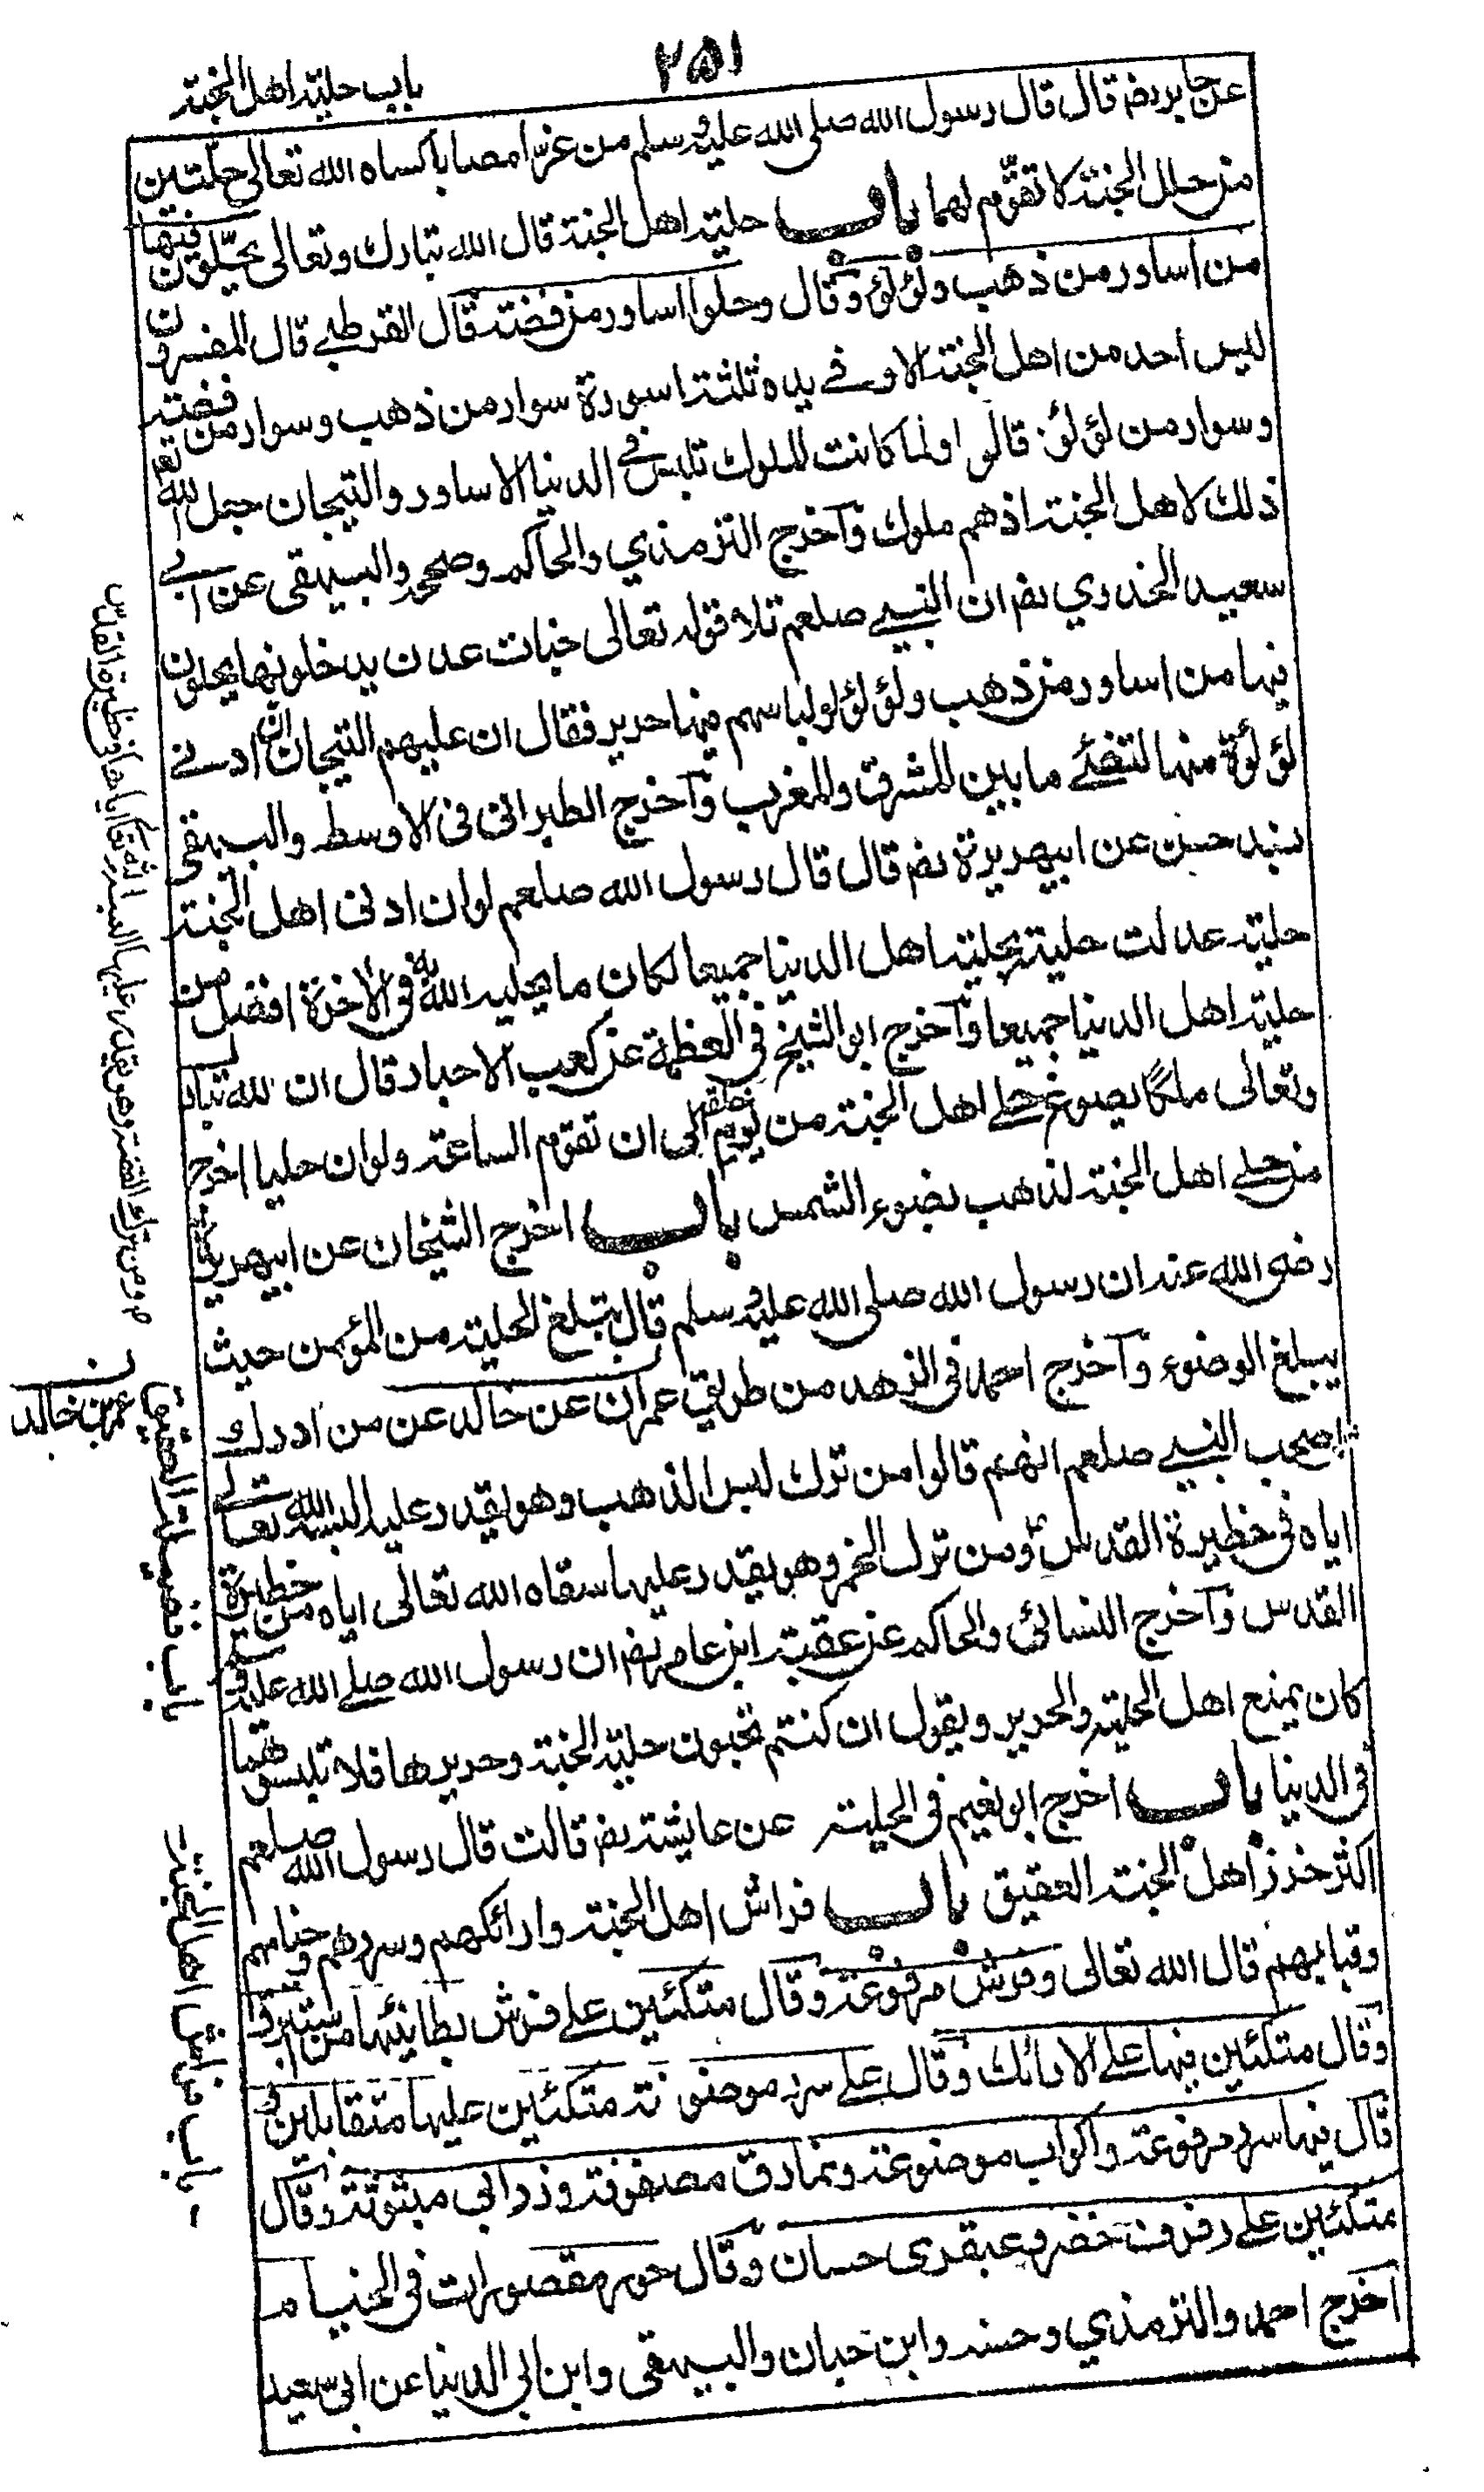 ٢٥١
باب حلية اهل الجنة
عن جابر رضہ قال قال رسول الله صلى الله عليه وسلم من عزّا مصابا كساه الله تعالى حلّتين
من حلل الجنة لا تقوّم لهما باب حلية اهل الجنة قال الله تبارك وتعالى يحلّون فيها
من اساور من ذهب ولؤلؤ وقال وحلوا اساور من فضة قال القرطبي قال المفسرون
ليس احد من اهل الجنة الا وفي يده ثلثة اسورة سوار من ذهب وسوار من فضة
وسوار من لؤلؤ قالوا ولما كانت الملوك تلبس في الدنيا الاساور والتيجان جعل الله تعالى
ذلك لاهل الجنة اذ هم ملوك وآخرج الترمذي والحاكم وصححه والبيهقى عن ابي
سعيد الخدري رضہ ان النبي صلعم تلا قوله تعالى جنات عدن يدخلونها يحلون
فيها من اساور من ذهب ولؤلؤ ولباسهم فيها حرير فقال ان عليهم التيجان ان ادنى
لؤلؤة منها لتضئ ما بين المشرق والمغرب وآخرج الطبرانى فى الاوسط والبيهقى
بسند حسن عن ابيهريرة رضہ قال قال رسول الله صلعم لو ان ادنى اهل الجنة
حلية عدلت حليته بحلية اهل الدنيا جميعا لكان ما يحليه الله به فى الآخرة افضل من
حلية اهل الدنيا جميعا وآخرج ابو الشيخ في العظمة عن كعب الاحبار قال ان لله تبارك
وتعالى ملكا يصوغ حلي اهل الجنة من يوم خلق الى ان تقوم الساعة ولو ان حليا اخرج
من حلي اهل الجنة لذهب بضوء الشمس باب اخرج الشيخان عن ابيهريرة
رضى الله عنه ان رسول الله صلى الله عليه وسلم قال تبلغ الحلية من المؤمن حيث
يبلغ الوضوء وآخرج احمد فى الزهد من طريق عمران عن خالد عن من ادرك
اصحب النبي صلعم انهم قالوا من ترك لبس الذهب وهو يقدر عليه البسه الله تعالى
اياه فى حظيرة القدس ومن ترك الخمر وهو يقدر عليها سقاه الله تعالى اياه من حظيرة
القدس وآخرج النسائى والحاكم عن عقبة ابن عامر رضہ ان رسول الله صلى الله عليه وسلم
كان يمنع اهل الحلية والحرير ويقول ان كنتم تحبون حلية الجنة وحريرها فلا تلبسوهما
فى الدنيا باب اخرج ابو نعيم فى الحلية عن عايشة رضہ قالت قال رسول الله صلعم
اكثر خرز اهل الجنة العقيق باب فراش اهل الجنة وارائكهم وسررهم وخيامهم
وقبابهم قال الله تعالى وفرش مرفوعة وقال متكئين على فرش بطائنها من استبرق
وقال متكئين فيها على الارائك وقال على سرر موضونة متكئين عليها متقابلين و
قال فيها سرر مرفوعة واكواب موضوعة ونمارق مصفوفة وزرابي مبثوثة وقال
متكئين على رفرف خضر وعبقري حسان وقال حور مقصورات فى الخيام
اخرج احمد والترمذي وحسنه وابن حبان والبيهقى وابن ابى الدنيا عن ابى سعيد
عمر بن خالد
باب فراش اهل الجنة